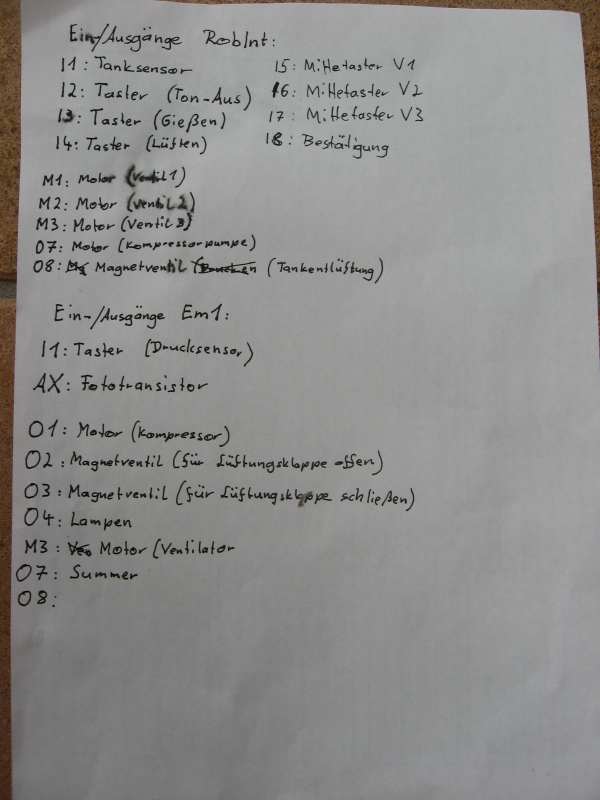 Ein-/Ausgänge RobInt:
I1: Tanksensor
I2: Taster (Ton-Aus)
I3: Taster (Gießen)
I4: Taster (Lüften)
I5: Mittetaster V1
I6: Mittetaster V2
I7: Mittetaster V3
I8: Bestätigung
M1: Motor (Ventil 1)
M2: Motor (Ventil 2)
M3: Motor (Ventil 3)
O7: Motor (Kompressorpumpe)
O8: Magnetventil (Tankentlüftung)
Ein-/Ausgänge Em1:
I1: Taster (Drucksensor)
AX: Fototransistor
O1: Motor (Kompressor)
O2: Magnetventil (für Lüftungsklappe offen)
O3: Magnetventil (für Lüftungsklappe schließen)
O4: Lampen
M3: Motor (Ventilator
O7: Summer
O8: